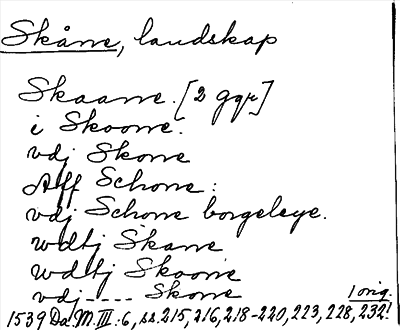 Skåne, landskap
Skaane. [2 ggr]
i Skoone.
vdj Skone
Aff Schone:
vdj Schone borgeleye.
wdtj Skane
wdtj Skoone
vdj ---- Skone
1 orig.
1539 Da. M. III:6, ss. 215, 216, 218-220, 223, 228, 232!